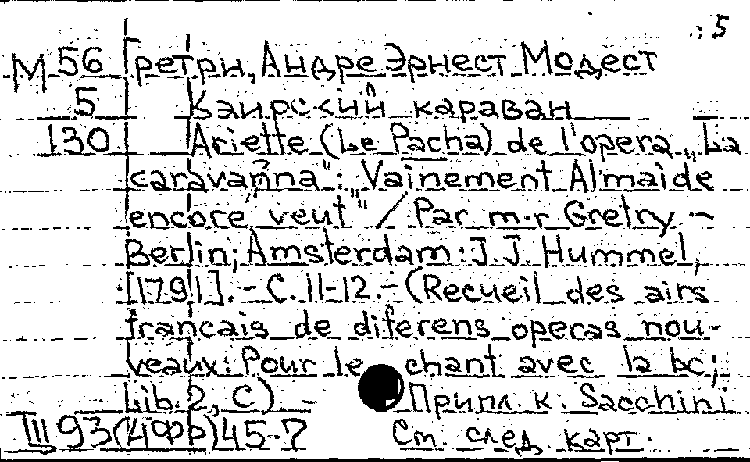 : 5
М 56 Гретри, Андре Эрнест Модест
5 Каирский караван
130 Ariette (Le Pacha) de l'opera „La
caravanna": „Vainement Almaide
encore veut" / Par m-r Gretry –
Berlin; Amsterdam: J.J. Hummel,
[1791]. – С. 11-12. – (Recueil des airs
francais de diferens operas nou-
veaux: Pour le chant avec la bc;
Lib. 2, C) Припл. к. Sacchini
III 93(4Фр)45-7 См. след. карт.